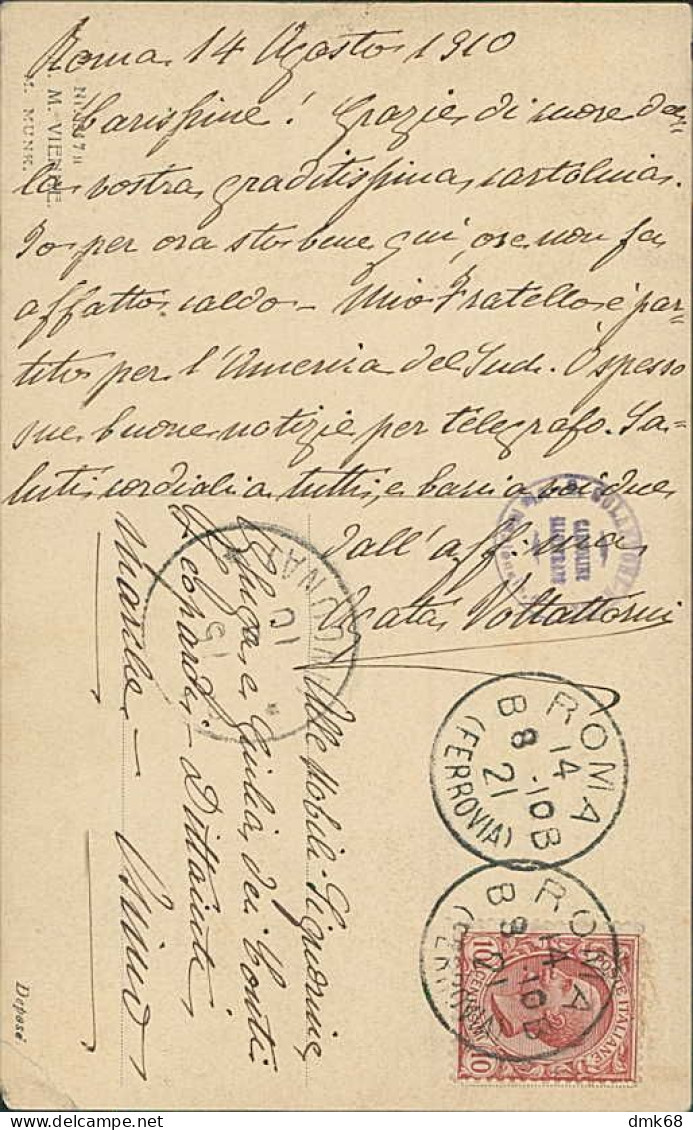 Roma 14 Agosto 1910
Carissime! Grazie di cuore del=
la vostra graditissima cartolina.
Io per ora sto bene qui, ove non fa
affatto caldo - Mio Fratello è par=
tito per l'America del Sud. Ò spesso
sue buone notizie per telegrafo. Sa=
luti cordiali a tutti, e bacia voi due
dall'aff.ma
Agata Voltattorni
Alle Nobili Signorine
Elisa e Giulia dei Conti
Leopardi - Dittaiuti
Marche - Osimo
M. M. VIENNE
M. MUNK.
ROMA
14 -10
B 8 21 B
(FERROVIA)
ROMA
14 -10
B 21 B
(FERROVIA)
POSTE ITALIANE
10 CENT 10
CARTOLINE
ILLUSTRATE
Deposé
dmk68